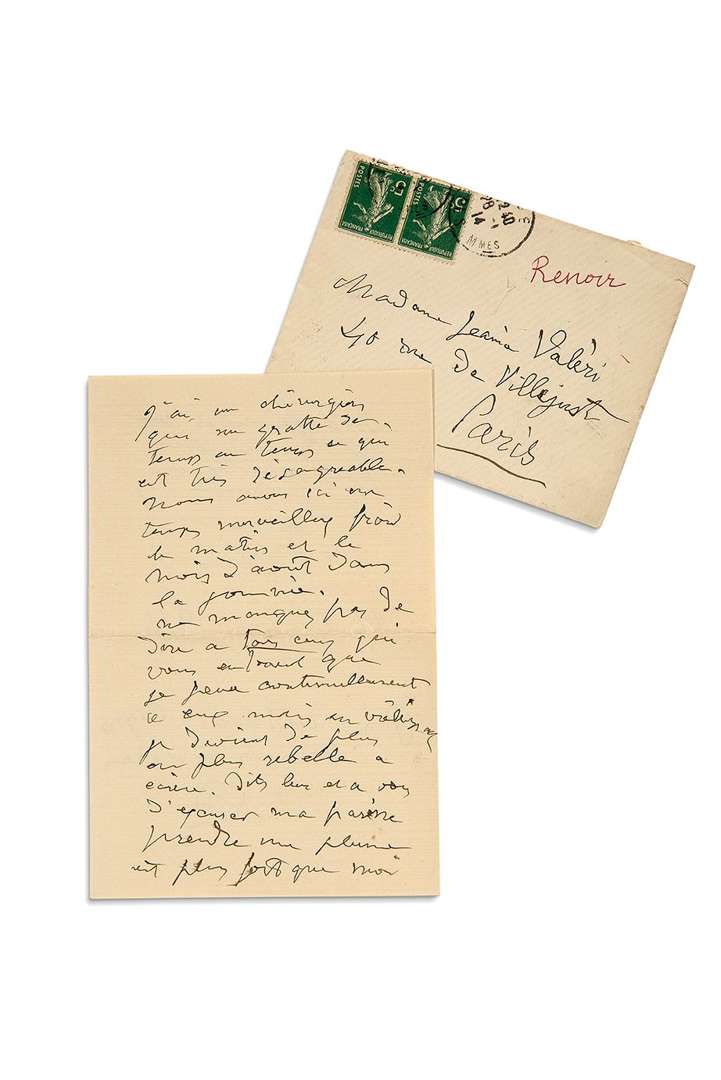 5c
POSTES
REPUBLIQUE FRANÇAISE
5c
POSTES
REPUBLIQUE FRANÇAISE
Renoir
Madame Jeanie Valèri
40 rue de Villejust
Paris
J'ai un chirurgien
qui me gratte de
temps en temps ce qui
est très désagréable.
Nous avons ici un
temps merveilleux froid
le matin et le
mois d'août dans
la journée.
ne manquez pas de
dire a tous ceux qui
vous entourent que
je pense continuellement
a eux mais en
je deviens de plus
en plus rebelle a
écrire. Dites leur et a vous
d'excuser ma paresse
prendre une plume
est plus fort que moi